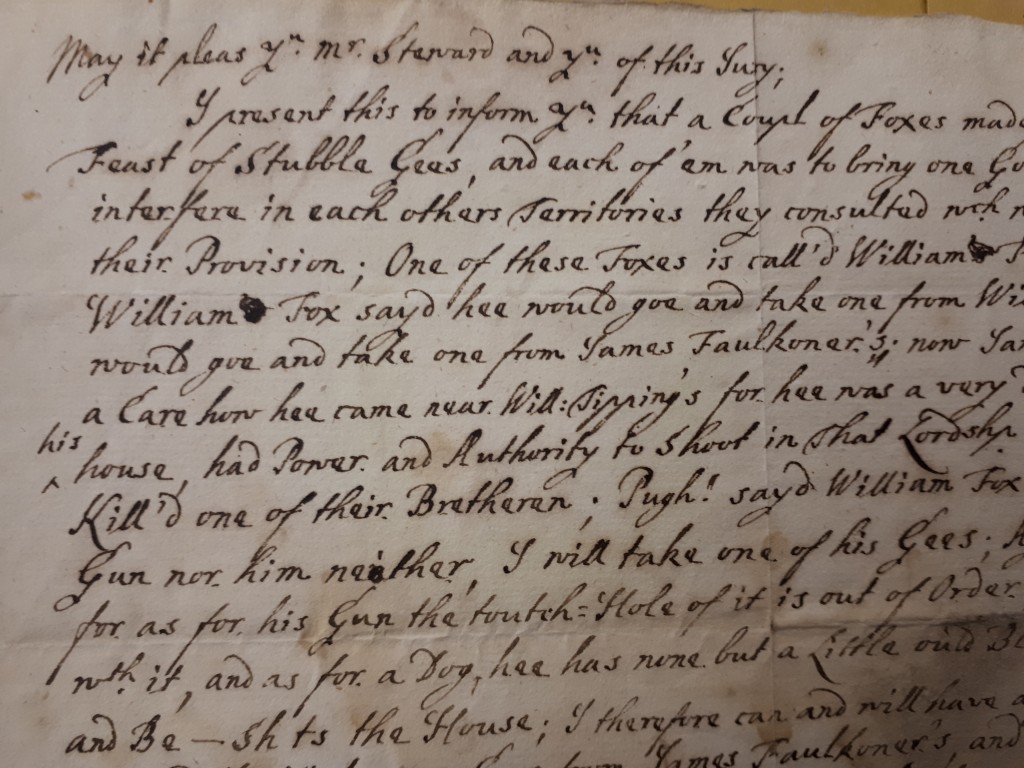 May it pleas yu. mr. Steward and yu. of this Jury;
I present this to inform yu. that a Coupl of Foxes made
Feast of Stubble Gees, and each of 'em was to bring one
interfere in each others Territories they consulted wch
their Provision; One of these Foxes is call'd William
William Fox sayd hee would goe and take one from
would goe and take one from James Faulkoner's; now
a Care how hee came near Will: Tipping's for hee was a very
his
^ house, had Power and Authority to Shoot in that Lordshp.
Kill'd one of their Bretheren; Pugh! sayd William Fox
Gun nor him neither, I will take one of his Gees;
for as for his Gun the toutch=Hole of it is out of Order
wth. it, and as for a Dog, hee has none but a Little ould
and Be—sh ts the House; I therefore can and will have
James Faulkoner's, and